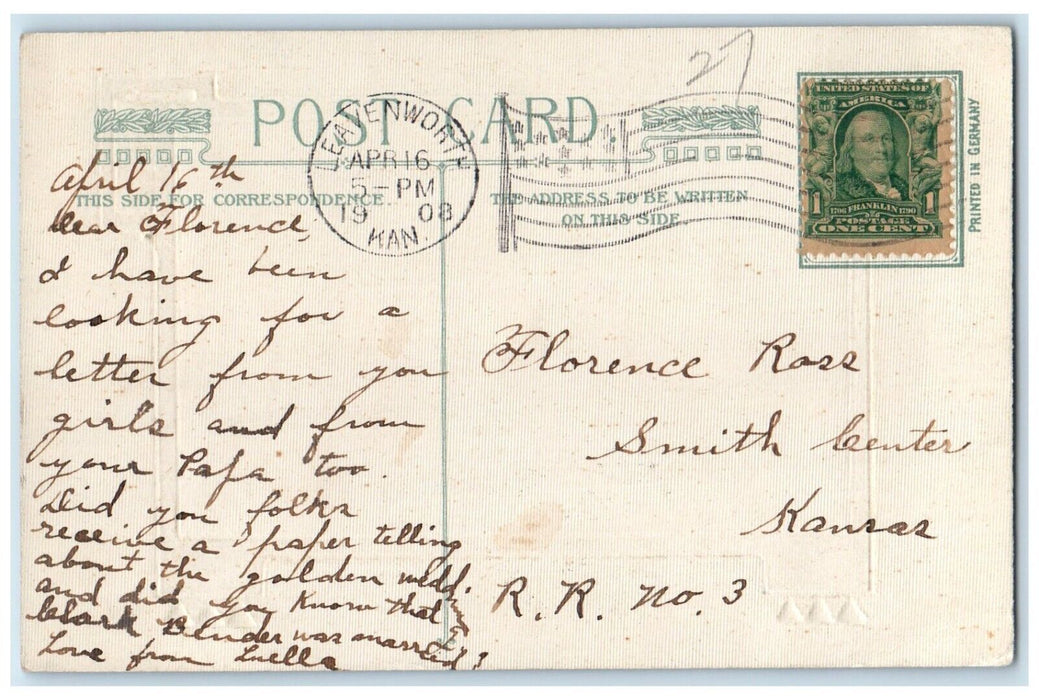 27
POST CARD
LEAVENWORTH
APR 16
5 - PM
19 08
KAN.
UNITED STATES OF
AMERICA
1706 FRANKLIN 1790
1 POSTAGE 1
ONE CENT
PRINTED IN GERMANY
THIS SIDE FOR CORRESPONDENCE.
THE ADDRESS TO BE WRITTEN
ON THIS SIDE
April 16th
Dear Florence,
I have been
looking for a
letter from you
girls and from
your Papa too.
Did you folks
receive a paper telling
about the golden wedding
and did you know that
Clark Bender was married?
Love from Luella
Florence Ross
Smith Center
Kansas
R. R. No. 3